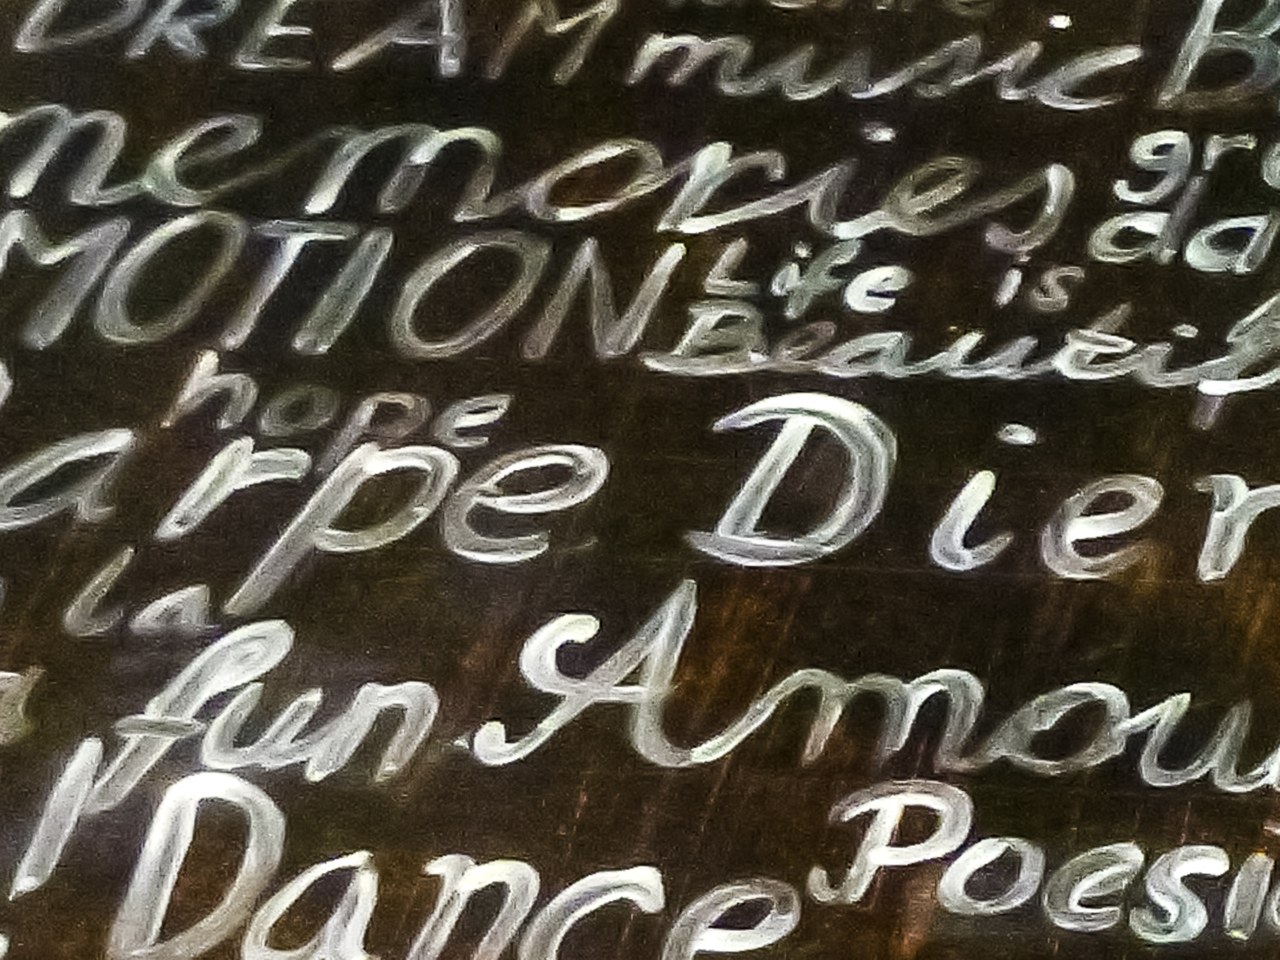 DREAM music B
memories gre
MOTION Life is da
Beautif
hope
arpe Dier
la
fun Amou
Dance Poesi